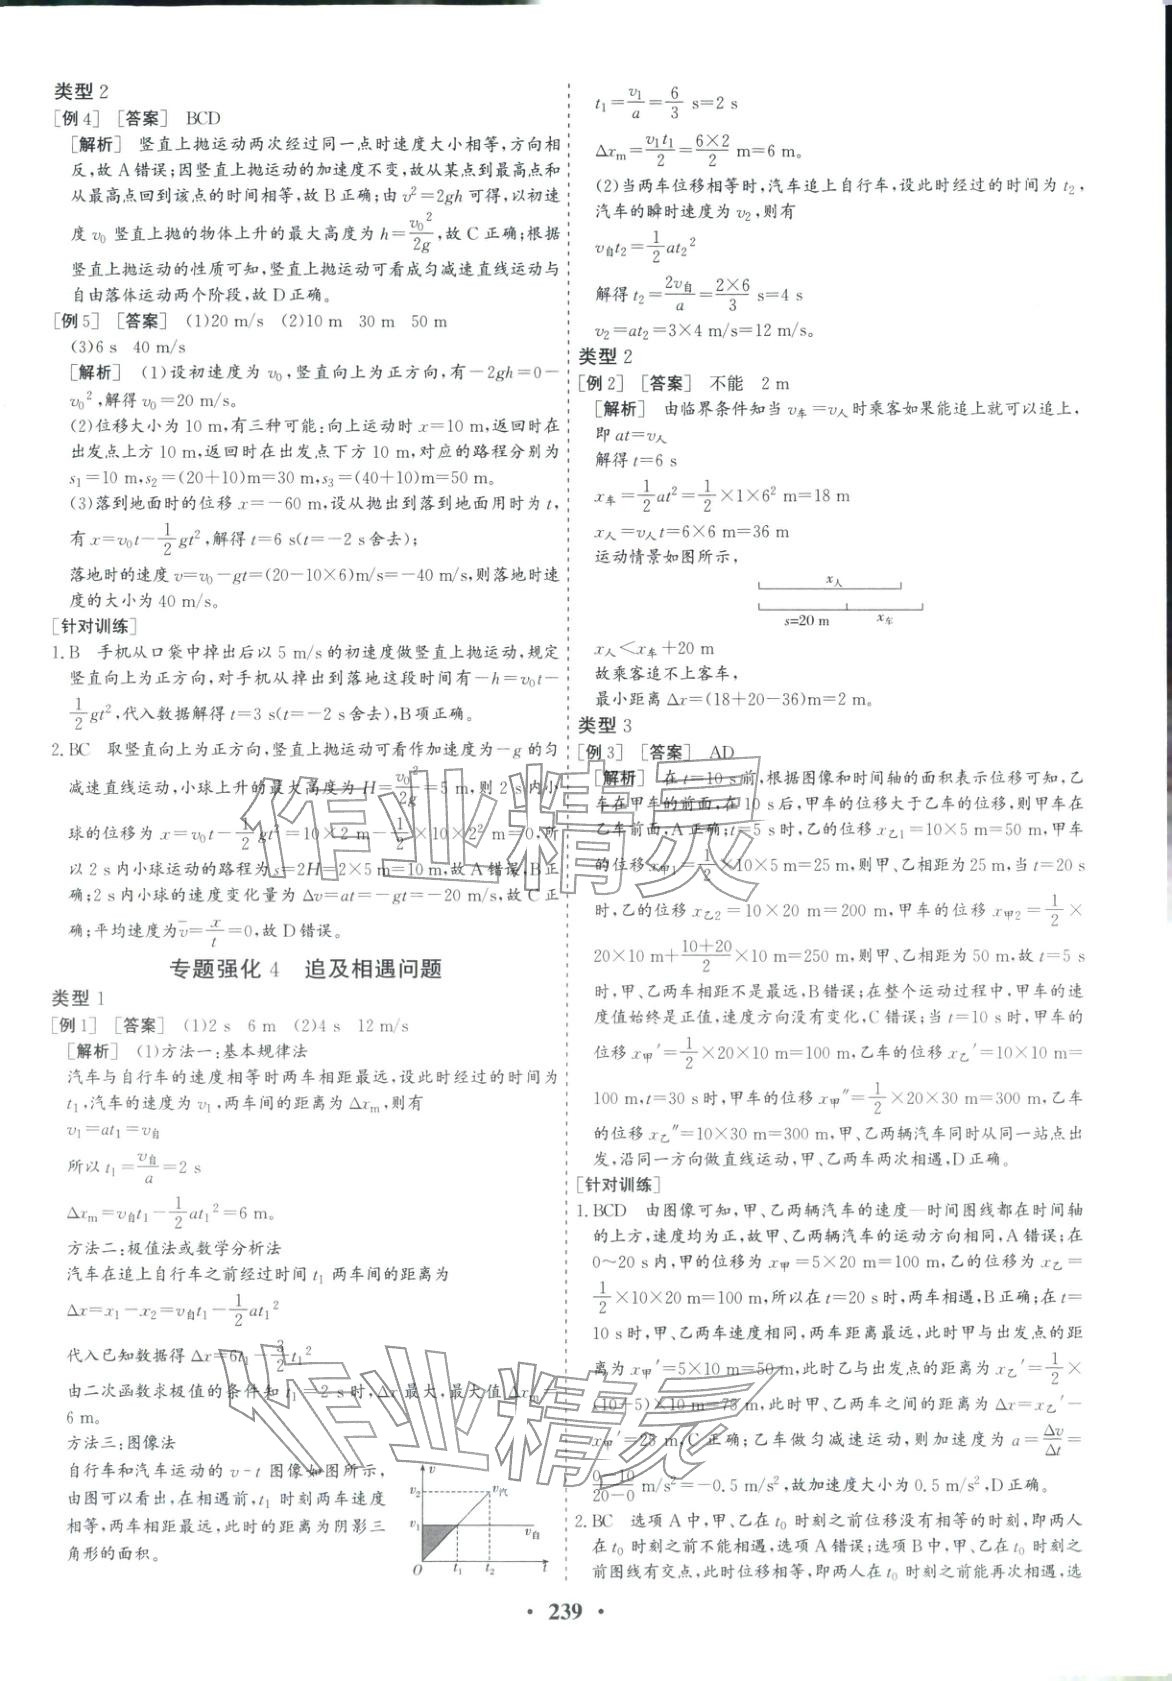 类型 2
[例 4] [答案] BCD
[解析] 竖直上抛运动两次经过同一点时速度大小相等,方向相
反,故 A 错误;因竖直上抛运动的加速度不变,故从某点到最高点和
从最高点回到该点的时间相等,故 B 正确;由 v²=2gh 可得,以初速
度 v₀ 竖直上抛的物体上升的最大高度为 h=v₀²/2g,故 C 正确;根据
竖直上抛运动的性质可知,竖直上抛运动可看成匀减速直线运动与
自由落体运动两个阶段,故 D 正确。
[例 5] [答案] (1)20 m/s (2)10 m 30 m 50 m
(3)6 s 40 m/s
[解析] (1)设初速度为 v₀,竖直向上为正方向,有-2gh=0-
v₀²,解得 v₀=20 m/s。
(2)位移大小为 10 m,有三种可能:向上运动时 x=10 m,返回时在
出发点上方 10 m,返回时在出发点下方 10 m,对应的路程分别为
s₁=10 m,s₂=(20+10)m=30 m,s₃=(40+10)m=50 m。
(3)落到地面时的位移 x=-60 m,设从抛出到落到地面用时为 t,
有 x=v₀t-1/2gt²,解得 t=6 s(t=-2 s舍去);
落地时的速度 v=v₀-gt=(20-10×6)m/s=-40 m/s,则落地时速
度的大小为 40 m/s。
[针对训练]
1. B 手机从口袋中掉出后以 5 m/s 的初速度做竖直上抛运动,规定
竖直向上为正方向,对手机从掉出到落地这段时间有-h=v₀t-
1/2gt²,代入数据解得 t=3 s(t=-2 s舍去),B 项正确。
2. BC 取竖直向上为正方向,竖直上抛运动可看作加速度为-g 的匀
减速直线运动,小球上升的最大高度为 H=v₀²/2g=5 m,则 2 s 内小
球的位移为 x=v₀t-1/2gt²=10×2 m-1/2×10×2² m=0,所
以 2 s 内小球运动的路程为 s=2H=2×5 m=10 m,故 A 错误,B 正
确;2 s 内小球的速度变化量为 Δv=at=-gt=-20 m/s,故 C 正
确;平均速度为 v̄=x/t=0,故 D 错误。
专题强化 4 追及相遇问题
类型 1
[例 1] [答案] (1)2 s 6 m (2)4 s 12 m/s
[解析] (1)方法一:基本规律法
汽车与自行车的速度相等时两车相距最远,设此时经过的时间为
t₁,汽车的速度为 v₁,两车间的距离为 Δxₘ,则有
v₁=at₁=v自
所以 t₁=v自/a=2 s
Δxₘ=v自t₁-1/2at₁²=6 m。
方法二:极值法或数学分析法
汽车在追上自行车之前经过时间 t₁ 两车间的距离为
Δx=x₁-x₂=v自t₁-1/2at₁²
代入已知数据得 Δx=6t₁-3/2t₁²
由二次函数求极值的条件知 t₁=2 s 时,Δx 最大,最大值 Δxₘ=
6 m。
方法三:图像法
自行车和汽车运动的 v-t 图像如图所示,
由图可以看出,在相遇前,t₁ 时刻两车速度
相等,两车相距最远,此时的距离为阴影三
角形的面积。
v
v₂
v汽
v₁
v自
O t₁ t₂ t
t₁=v₁/a=6/3 s=2 s
Δxₘ=v₁t₁/2=6×2/2 m=6 m。
(2)当两车位移相等时,汽车追上自行车,设此时经过的时间为 t₂,
汽车的瞬时速度为 v₂,则有
v自t₂=1/2at₂²
解得 t₂=2v自/a=2×6/3 s=4 s
v₂=at₂=3×4 m/s=12 m/s。
类型 2
[例 2] [答案] 不能 2 m
[解析] 由临界条件知当 v车=v人时乘客如果能追上就可以追上,
即 at=v人
解得 t=6 s
x车=1/2at²=1/2×1×6² m=18 m
x人=v人t=6×6 m=36 m
运动情景如图所示,
x人
s=20 m x车
x人<x车+20 m
故乘客追不上客车,
最小距离 Δx=(18+20-36)m=2 m。
类型 3
[例 3] [答案] AD
[解析] 在 t=10 s 前,根据图像和时间轴的面积表示位移可知,乙
车在甲车的前面,在 10 s 后,甲车的位移大于乙车的位移,则甲车在
乙车前面,A 正确;t=5 s 时,乙的位移 x乙1=10×5 m=50 m,甲车
的位移 x甲1=1/2×10×5 m=25 m,则甲、乙相距为 25 m,当 t=20 s
时,乙的位移 x乙2=10×20 m=200 m,甲车的位移 x甲2=1/2×
20×10 m+10+20/2×10 m=250 m,则甲、乙相距为 50 m,故 t=5 s
时,甲、乙两车相距不是最远,B 错误;在整个运动过程中,甲车的速
度值始终是正值,速度方向没有变化,C 错误;当 t=10 s 时,甲车的
位移 x甲′=1/2×20×10 m=100 m,乙车的位移 x乙′=10×10 m=
100 m,t=30 s 时,甲车的位移 x甲″=1/2×20×30 m=300 m,乙车
的位移 x乙″=10×30 m=300 m,甲、乙两辆汽车同时从同一站点出
发,沿同一方向做直线运动,甲、乙两车两次相遇,D 正确。
[针对训练]
1. BCD 由图像可知,甲、乙两辆汽车的速度—时间图线都在时间轴
的上方,速度均为正,故甲、乙两辆汽车的运动方向相同,A 错误;在
0~20 s 内,甲的位移为 x甲=5×20 m=100 m,乙的位移为 x乙=
1/2×10×20 m=100 m,所以在 t=20 s 时,两车相遇,B 正确;在 t=
10 s 时,甲、乙两车速度相同,两车距离最远,此时甲与出发点的距
离为 x甲′=5×10 m=50 m,此时乙与出发点的距离为 x乙′=1/2×
(10+5)×10 m=75 m,此时甲、乙两车之间的距离为 Δx=x乙′-
x甲′=25 m,C 正确;乙车做匀减速运动,则加速度为 a=Δv/Δt=
0-10/20-0 m/s²=-0.5 m/s²,故加速度大小为 0.5 m/s²,D 正确。
2. BC 选项 A 中,甲、乙在 t₀ 时刻之前位移没有相等的时刻,即两人
在 t₀ 时刻之前不能相遇,选项 A 错误;选项 B 中,甲、乙在 t₀ 时刻之
前图线有交点,此时位移相等,即两人在 t₀ 时刻之前能再次相遇,选
• 239 •
作业精灵
作业精灵